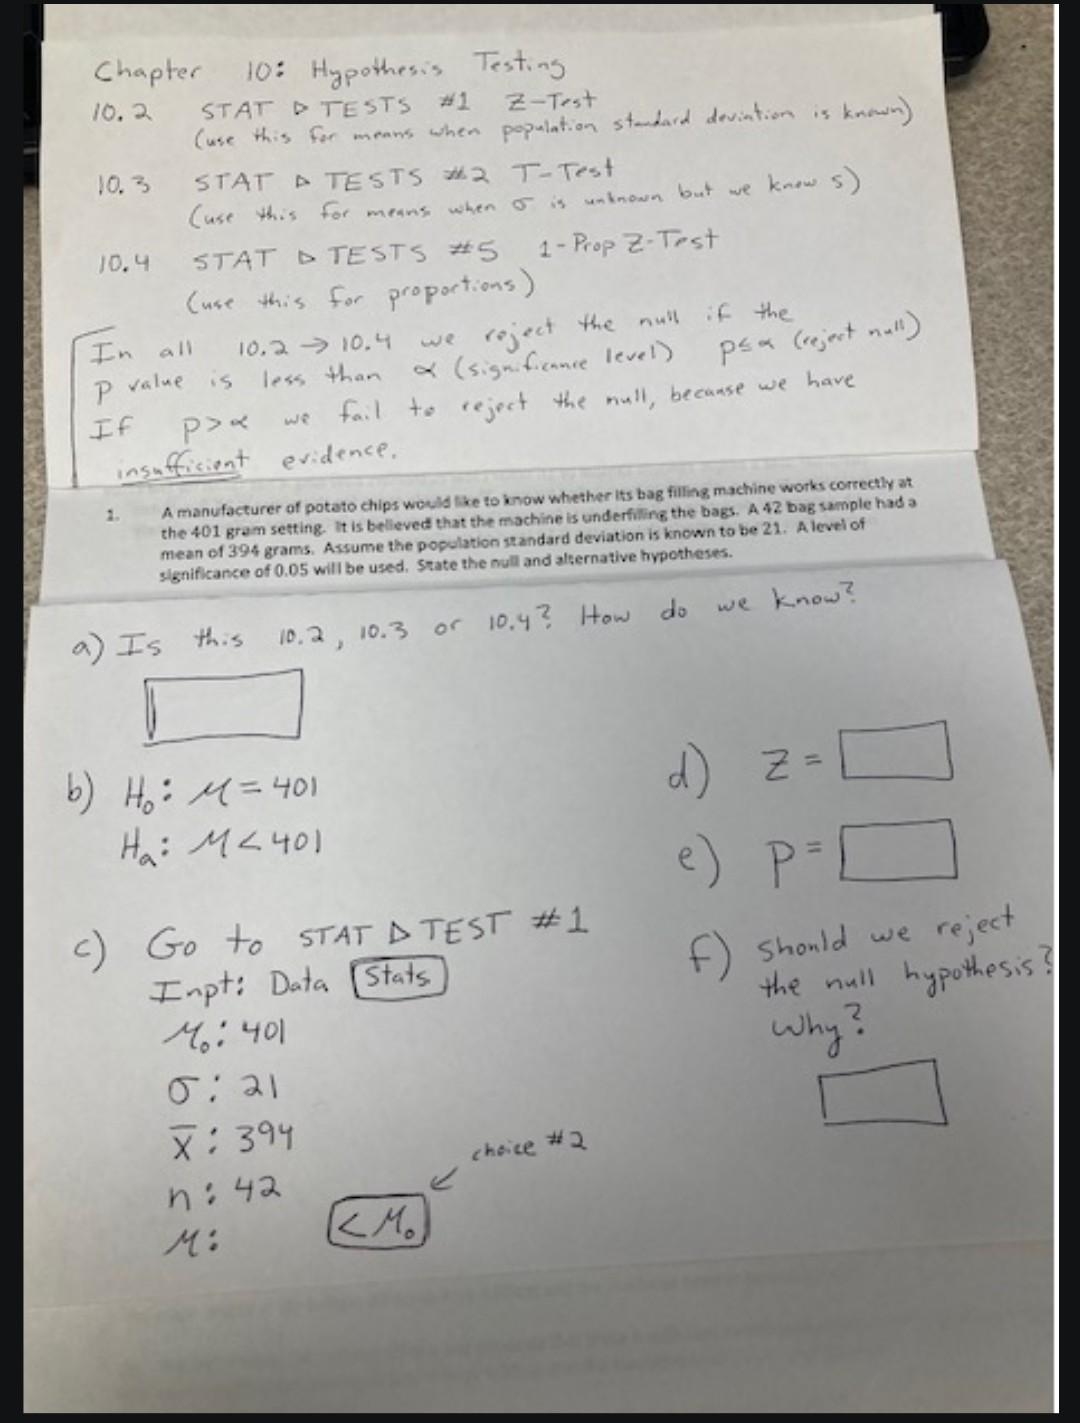 Chapter 10: Hypothesis Testing
10.2 STAT ▷ TESTS #1 Z-Test
(use this for means when population standard deviation is known)
10.3 STAT ▷ TESTS #2 T-Test
(use this for means when σ is unknown but we know s)
10.4 STAT ▷ TESTS #5 1-Prop Z-Test
(use this for proportions)
In all 10.2 → 10.4 we reject the null if the
p value is less than α (significance level) p≤α (reject null)
If p>α we fail to reject the null, because we have
insufficient evidence.
1. A manufacturer of potato chips would like to know whether its bag filling machine works correctly at
the 401 gram setting. It is believed that the machine is underfilling the bags. A 42 bag sample had a
mean of 394 grams. Assume the population standard deviation is known to be 21. A level of
significance of 0.05 will be used. State the null and alternative hypotheses.
a) Is this 10.2, 10.3 or 10.4? How do we know?
b) H₀: μ = 401
Hₐ: μ < 401
c) Go to STAT ▷ TEST #1
Inpt: Data Stats
μ₀: 401
σ: 21
x̄: 394
n: 42
μ: < μ₀
choice #2
d) Z =
e) p =
f) Should we reject
the null hypothesis?
Why?